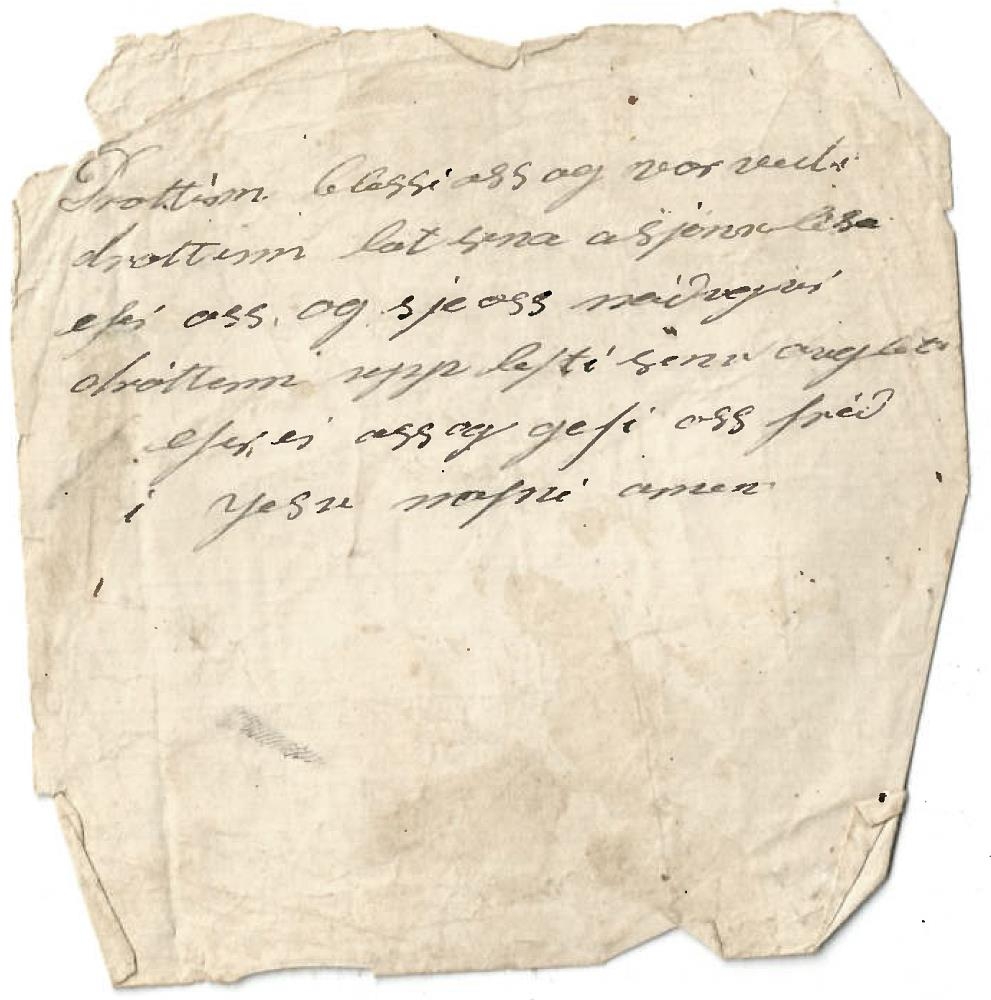 Drottinn blessi oss og vor vedi
drottinn lat sina asjónu lisa
efir oss. og sje oss náðugur
dróttinn upp lefti sinu auglite
efir, ei oss og gefi oss frið
i Jesu nafni amen